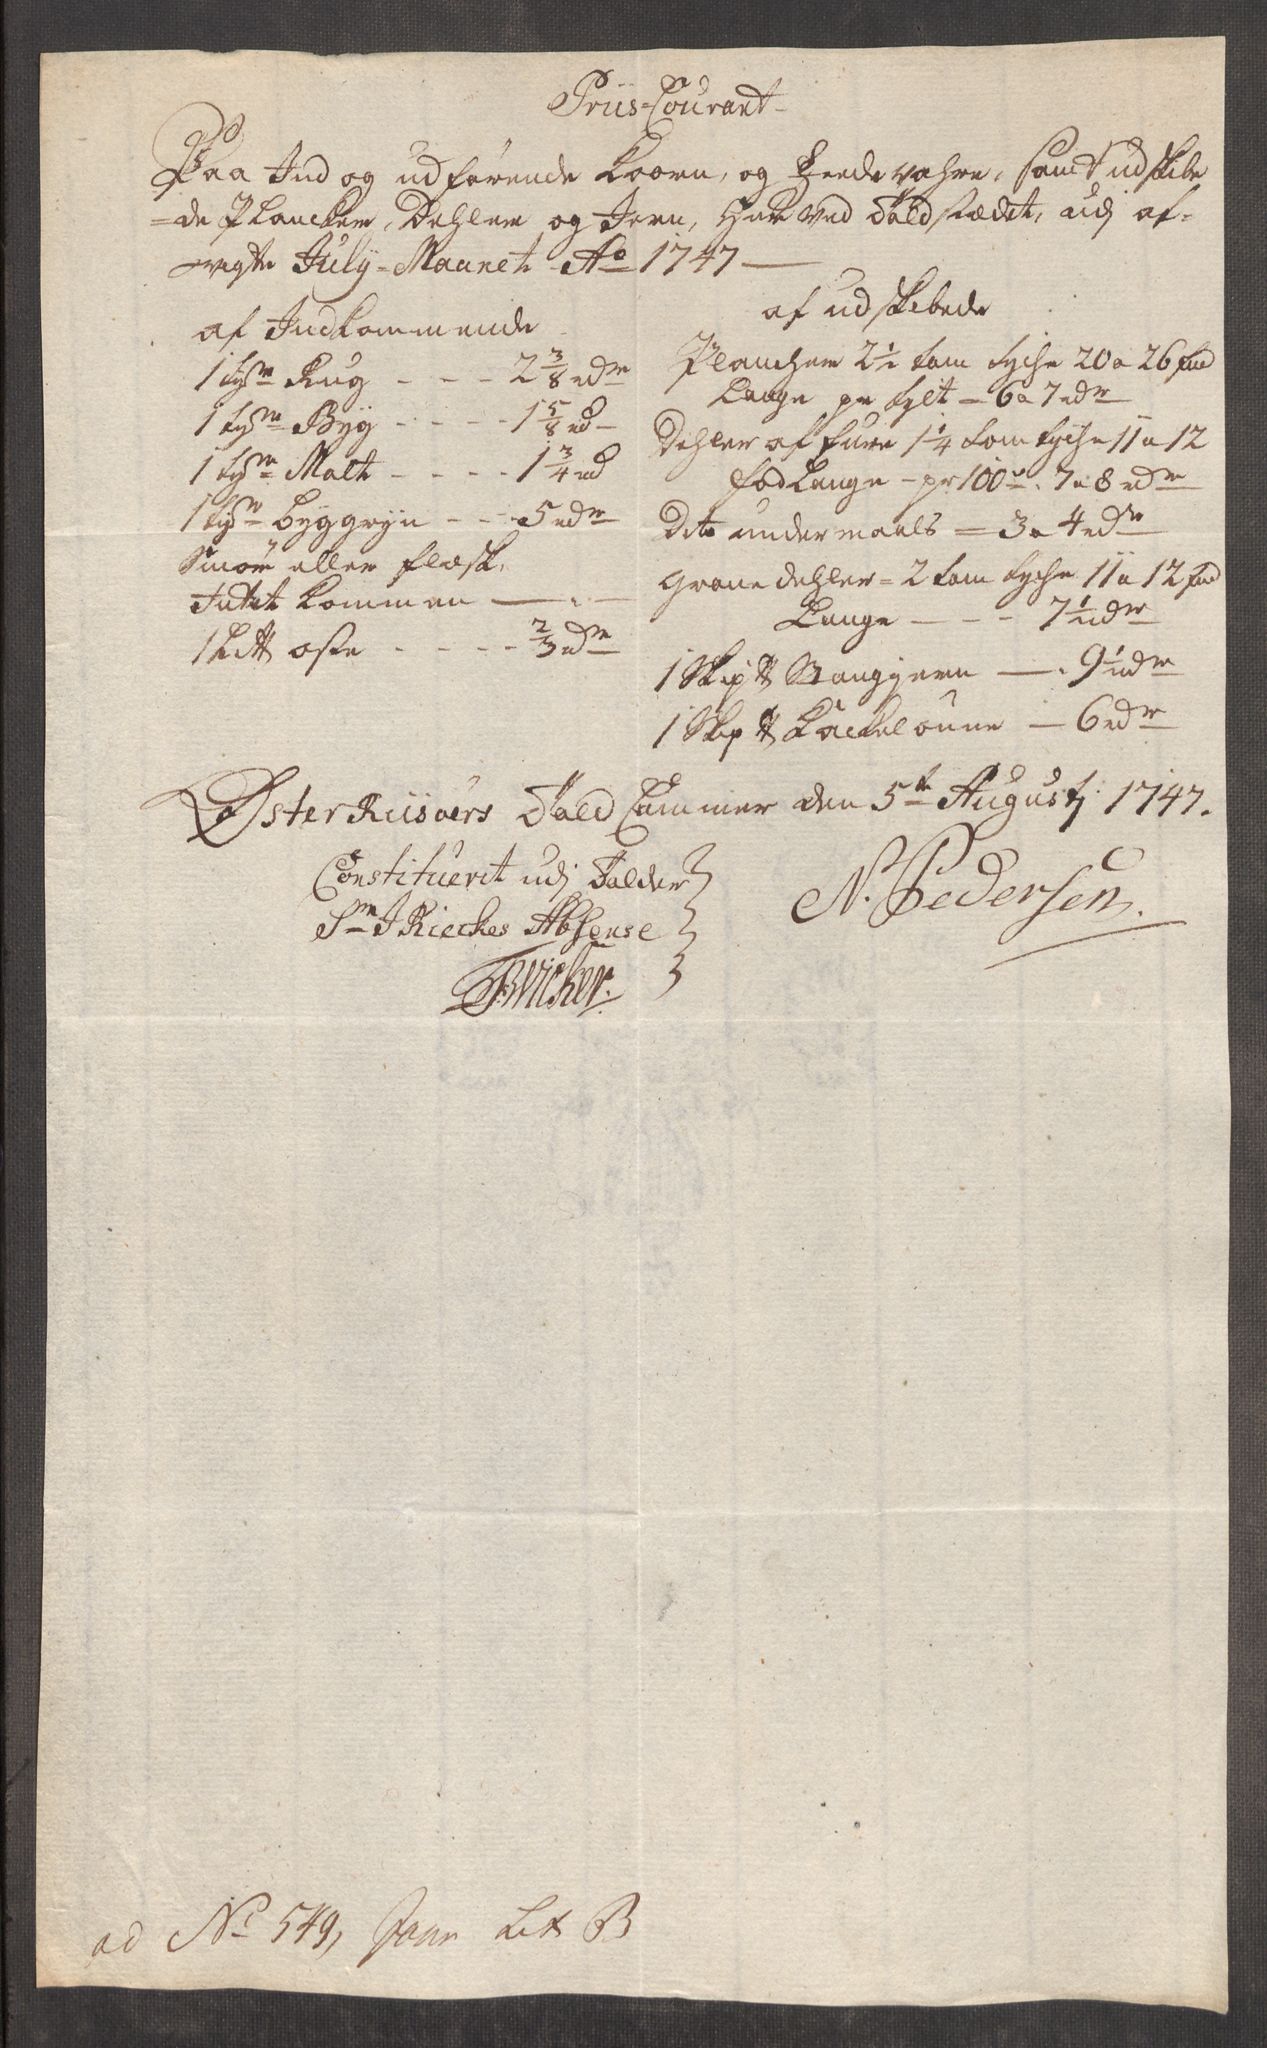 Priis-Courant
Paa Ind og udførende Koorn, og Feede vahre, samt udskibe
=de Plancker, Dehler og Jern, Her ved Toldstædet, udj af-
vigte July-Maanet Ao 1747
af Indkommende
1 tøn Rug - - - 2 3/8 rdr
1 tøn Byg - - - - 1 5/8 rd
1 tøn Malt - - - - 1 3/4 rd
1 tøn byggryn - - - 5 rdr
Smør eller flæsk,
Intet kommen
1 Lit℔ oste - - - - 2/3 rdr
af udskibede
Plancher 2½ tom tyche 20 a 26 fod
Lange pr tylt = 6 a 7 rdr
Dehler af fure 1¼ tom tyche 11 a 12
fod Lange - pr 100de. 7 a 8 rdr
Dito undermaals = 3 a 4 rdr
Grane dehler = 2 tom tyche 11 a 12 fod
Lange - - - 7½ rdr
1 Skip℔ Stangjern - 9½ rdr
1 Skip℔ Kackeloune - 6 rdr
Øster Riisøers Told Cammer den 5te Augustj: 1747.
Constituerit udj Tolder
Sr J Rieckes Absense
N. Pedersen.
ad No 549, Lit B